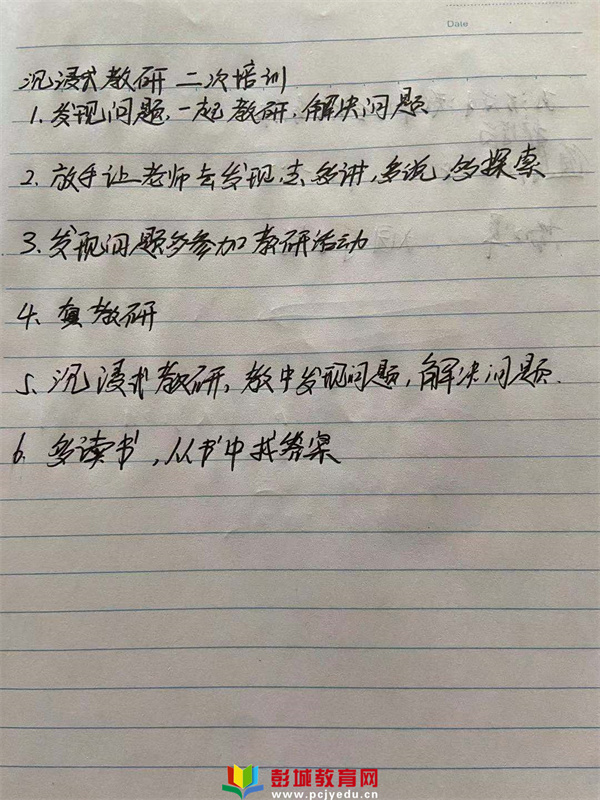 Date
沉浸式教研二次培训
1、发现问题,一起教研,解决问题
2、放手让老师去发现,去多讲,多说,多探索
3、发现问题多参加教研活动
4、真教研
5、沉浸式教研,教中发现问题,解决问题.
6、多读书,从书中找答案
彭城教育网
www.pcjyedu.cn